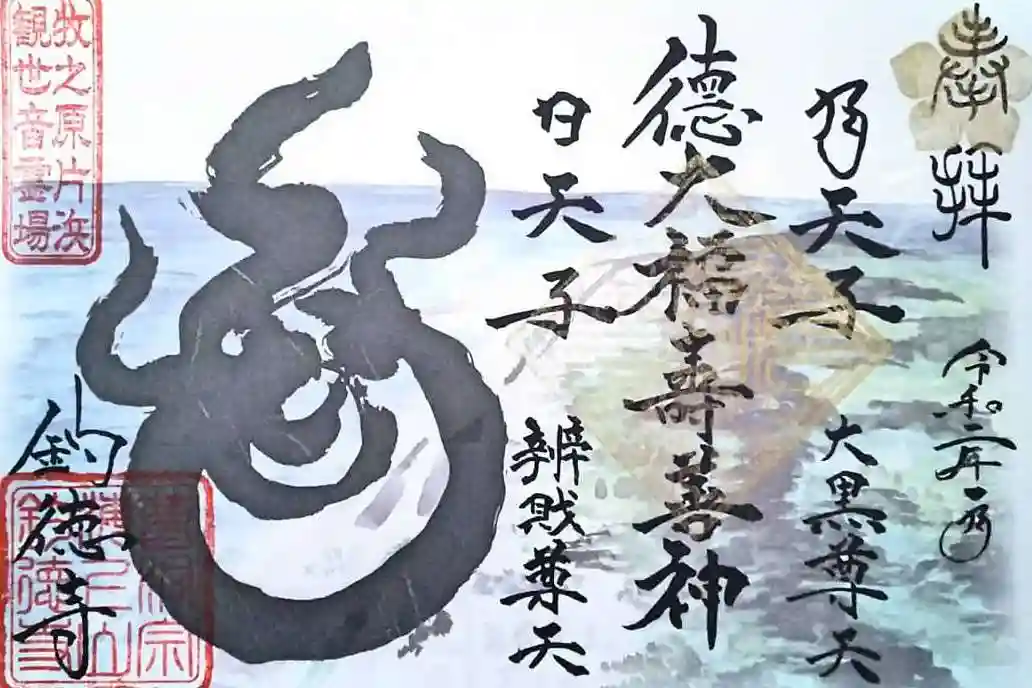 奉拝
令和二年一月
月天子
大黒尊天
徳大福壽善神
日天子
辨財尊天
牧之原片浜
観世音霊場
釣徳寺